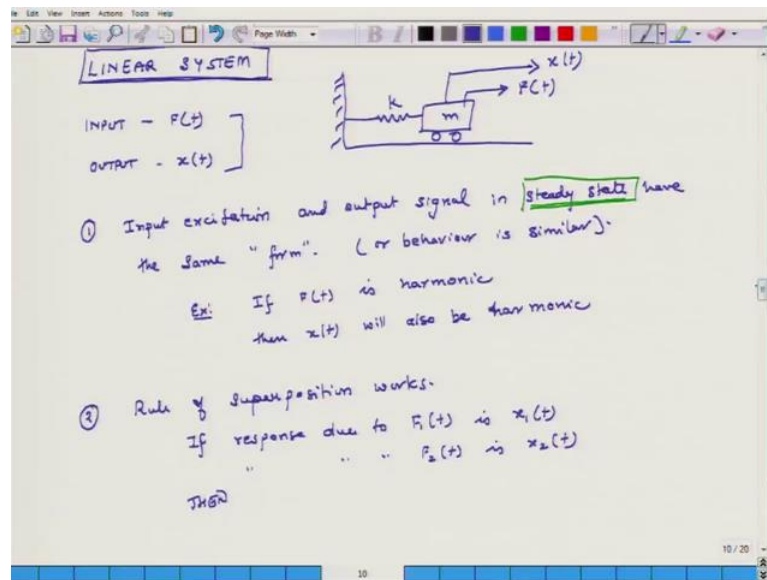 Edit View Insert Actions Tools Help
Page Width
B I
LINEAR SYSTEM
x(t)
F(t)
k
m
INPUT - F(t)
OUTPUT - x(t)
① Input excitation and output signal in steady state have
the same "form". (or behaviour is similar).
Ex: If F(t) is harmonic
then x(t) will also be harmonic
② Rule of superposition works.
If response due to F₁(t) is x₁(t)
" " " F₂(t) is x₂(t)
THEN
10 / 20
10